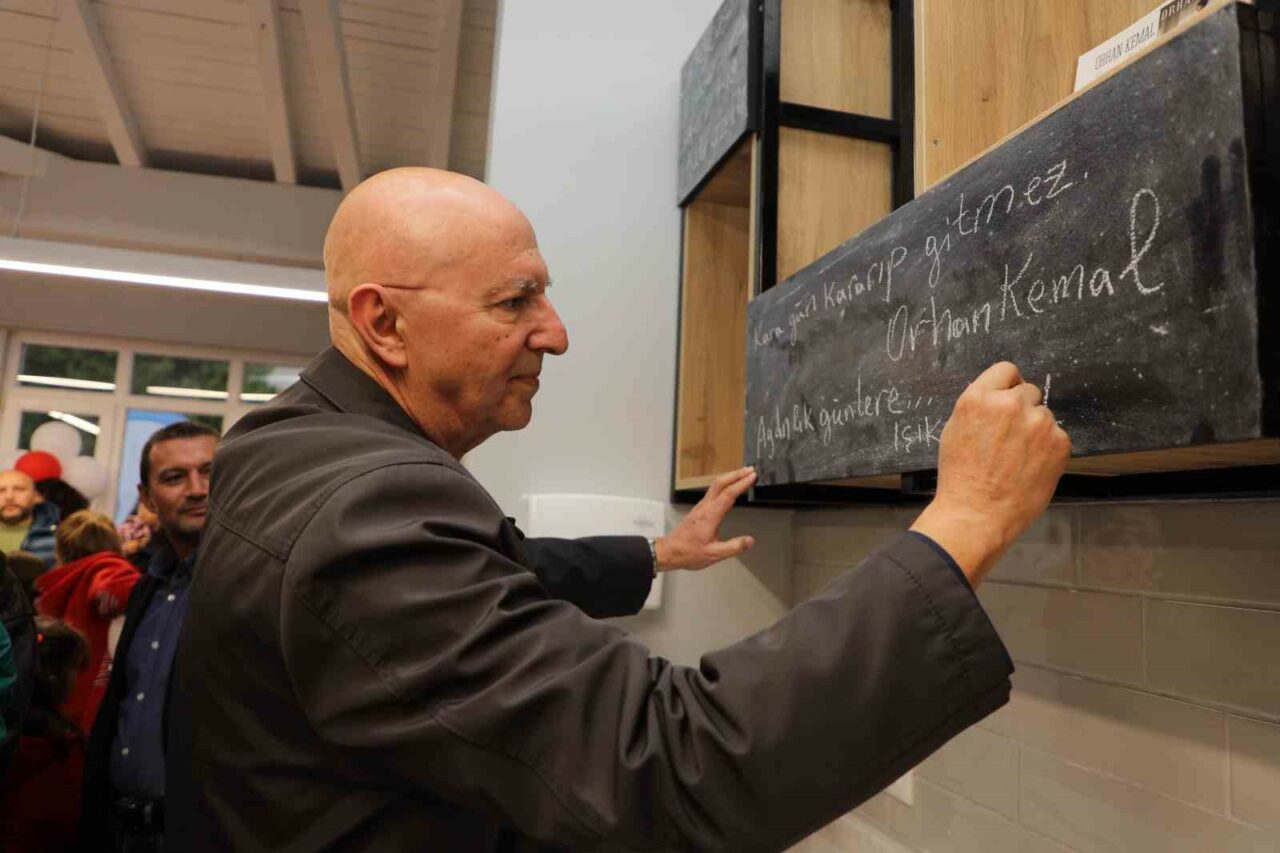 ORHAN KEMAL
ORHA
Kara gün Kararıp gitmez.
Orhan Kemal
Aydınlık günlere...
Işık